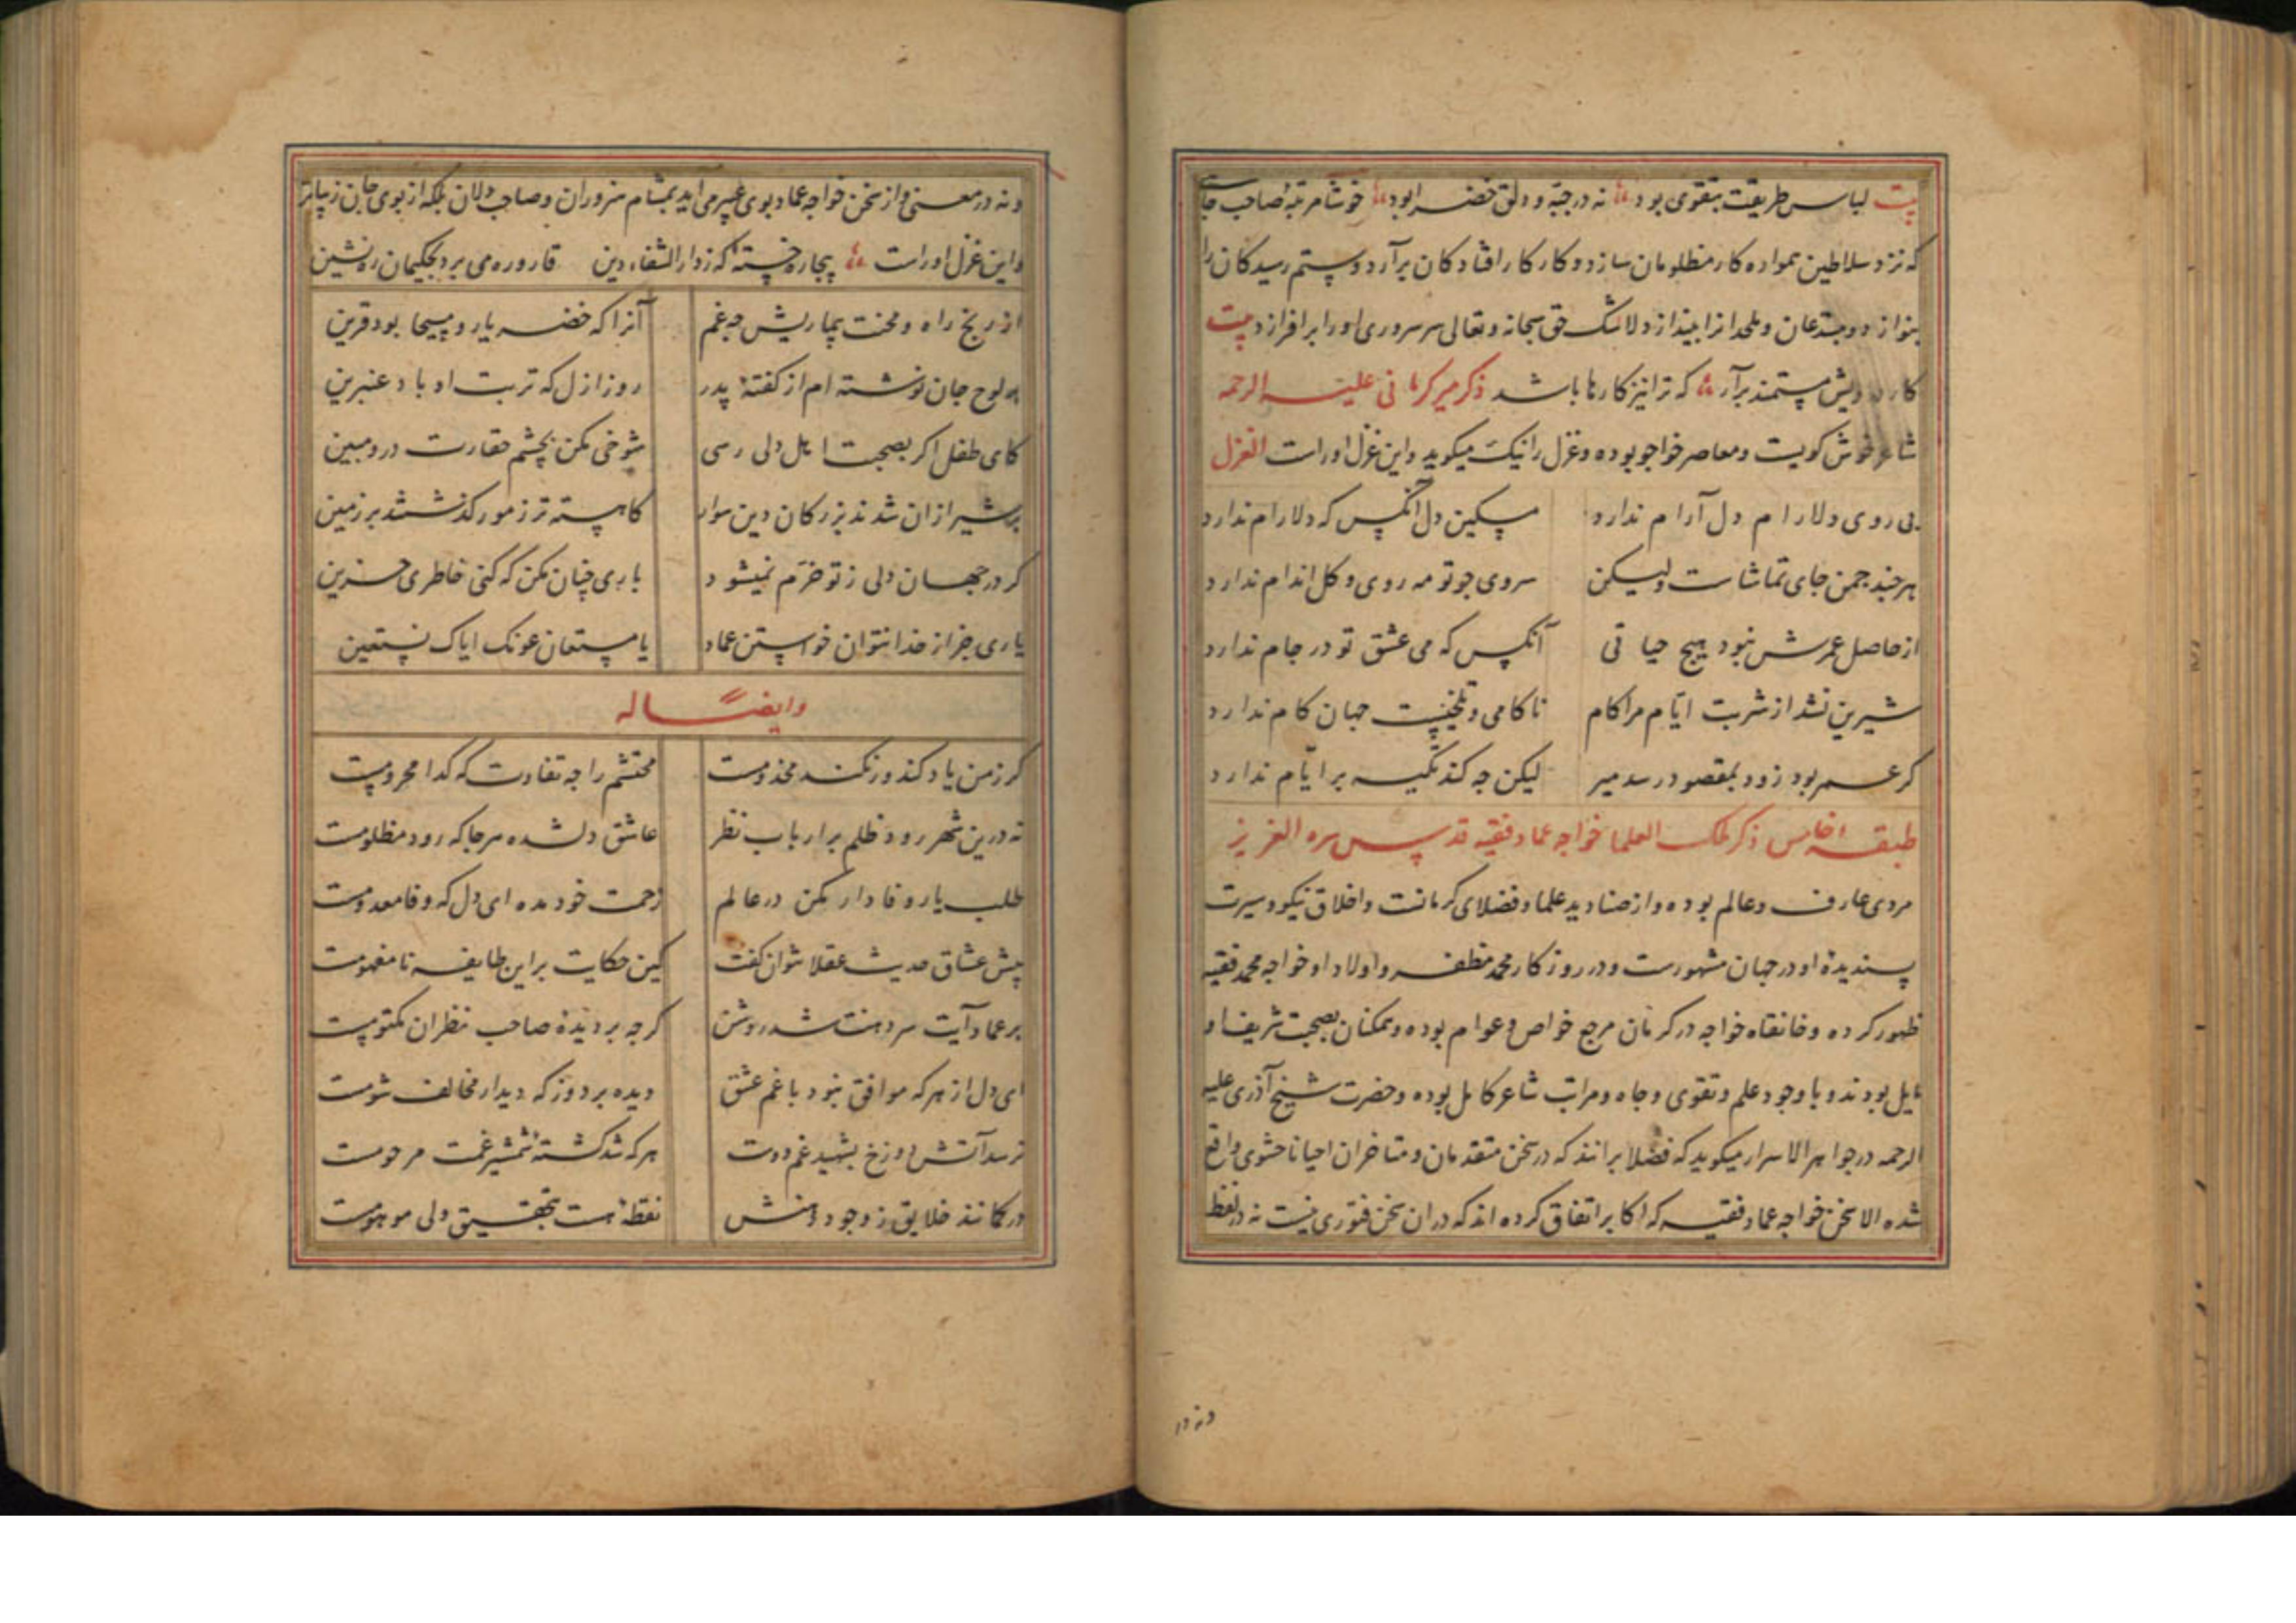 بیت لباس طریقت بتقوی بود نه در جبه و دلق خضرا بود خوشا مرتبه صاحب جاهی
که نزد سلاطین همواره کار مظلومان سازد و کار کار افتادکان برآرد و ستم رسیدکان را
بنوازد و مبتدعان و ملحدانرا بیندازد لاشک حق سبحانه و تعالی سر سروری اورا برافرازد بیت
کار درویش مستمند برآر که ترا نیز کارها باشد ذکر میر کرمانی علیه الرحمه
شاعر خوش کویست و معاصر خواجو بوده و غزل را نیک میکوید و این غزل اوراست الغزل
بی روی دلارام دل آرام ندارد مسکین دل آنکس که دلارام ندارد
هرچند چمن جای تماشاست ولیکن سروی چو تو مه روی و کل اندام ندارد
از حاصل عمرش نبود هیچ حیاتی آنکس که می عشق تو در جام ندارد
شیرین نشد از شربت ایام مرا کام ناکامی و تلخیست جهان کام ندارد
کر عمر بود زود بمقصود رسد میر لیکن چه کند تکیه بر ایام ندارد
طبقه الخامس ذکر ملک العلما خواجه عماد فقیه قدس سره العزیز
مردی عارف و عالم بوده و از صنادید علما و فضلای کرمانست و اخلاق نیکو و سیرت
پسندیدهٔ او در جهان مشهورست و در روزکار محمد مظفر و اولاد او خواجه محمد فقیه
ظهور کرده و خانقاه خواجه در کرمان مرجع خواص و عوام بوده و همکنان بصحبت شریف او
مایل بودند و با وجود علم و تقوی و جاه و مراتب شاعر کامل بوده و حضرت شیخ آذری علیه
الرحمه در جواهر الاسرار میکوید که فضلا برانند که در سخن متقدمان و متاخران احیانا حشوی واقع
شده الا سخن خواجه عماد فقیه که اکابر اتفاق کرده اند که در ان سخن فتوری نیست نه در لفظ
ونه در
ونه در معنی و از سخن خواجه عماد بوی عبیر می آید بمشام سروران و صاحب دلان بلکه از بوی جان زیباتر
واین غزل اوراست بیچاره خستهٔ که زدار الشفاء دین قاروره می برد بحکیمان ره نشین
از رنج راه و محنت بیماریش چه غم آنرا که خضر یار و مسیحا بود قرین
بر لوح جان نوشته ام از کفتهٔ پدر روز ازل که تربت او باد عنبرین
کای طفل اکر بصحبت اهل دلی رسی شوخی مکن بچشم حقارت درو مبین
بر شیر ازان شدند بزرکان دین سوار کاهسته تر ز مور کذشتند بر زمین
کر در جهان دلی ز تو خرم نمیشود باری چنان مکن که کنی خاطری حزین
یاری جز از خدا نتوان خواستن عماد یا مستعان عونک ایاک نستعین
وایضاً له
کر زمن یاد کند ور نکند مخدومست محتشم را چه تفاوت که کدا محرومست
نه درین شهر رود ظلم بر ارباب نظر عاشق دلشده هر جا که رود مظلومست
طلب یار وفادار مکن در عالم زحمت خود مده ای دل که وفا معدومست
پیش عشاق حدیث عقلا نتوان کفت کین حکایت بر این طایفه نامفهومست
بر عماد آیت سر دهنت شد روشن کرچه بر دیدهٔ صاحب نظران مکتومست
ای دل از هر که موافق نبود با غم عشق دیده بردوز که دیدار مخالف شومست
نرسد آتش دوزخ بشهید غم دوست هر که شد کشتهٔ شمشیر غمت مرحومست
در کمانند خلایق ز وجود دهنش نقطهٔ هست بتحقیق ولی موهومست